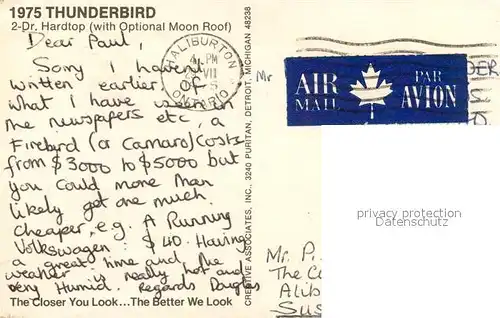 1975 THUNDERBIRD
2-Dr. Hardtop (with Optional Moon Roof)
Dear Paul,
Sorry I havent
written earlier. Of
what I have seen in
the newspapers etc, a
Firebird (or Camaro) costs
from $3000 to $5000 but
you could more than
likely get one much
cheaper, e.g. A Running
Volkswagen: $40. Having
a great time and the
weather is really hot and
very Humid. Regards Douglas
The Closer You Look...The Better We Look
CREATIVE ASSOCIATES, INC., 3240 PURITAN, DETROIT, MICHIGAN 48238
HALIBURTON
PM
VII
ONTARIO
Mr
AIR
MAIL
PAR
AVION
privacy protection
Datenschutz
Mr. P.
The C
Alib
Sus